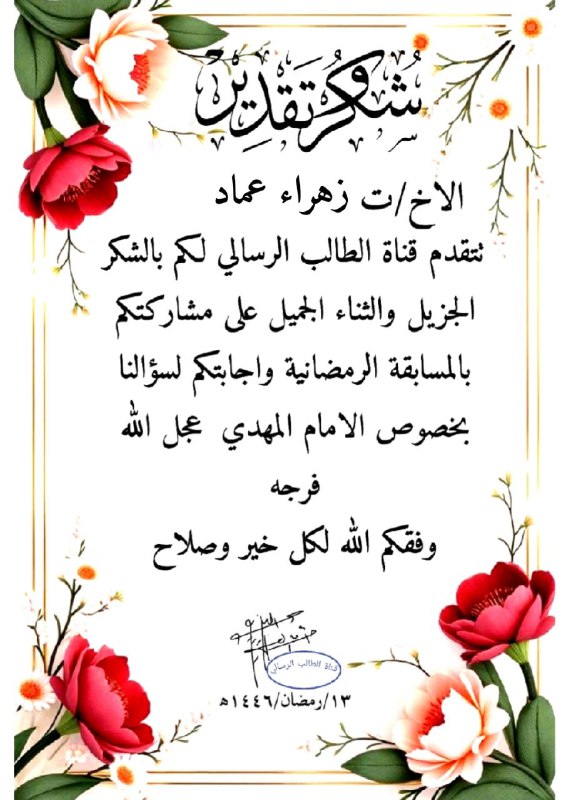 شكر وتقدير
الاخ/ت زهراء عماد
تتقدم قناة الطالب الرسالي لكم بالشكر
الجزيل والثناء الجميل على مشاركتكم
بالمسابقة الرمضانية واجابتكم لسؤالنا
بخصوص الامام المهدي عجل الله
فرجه
وفقكم الله لكل خير وصلاح
قناة الطالب الرسالي
١٣/رمضان/١٤٤٦ه